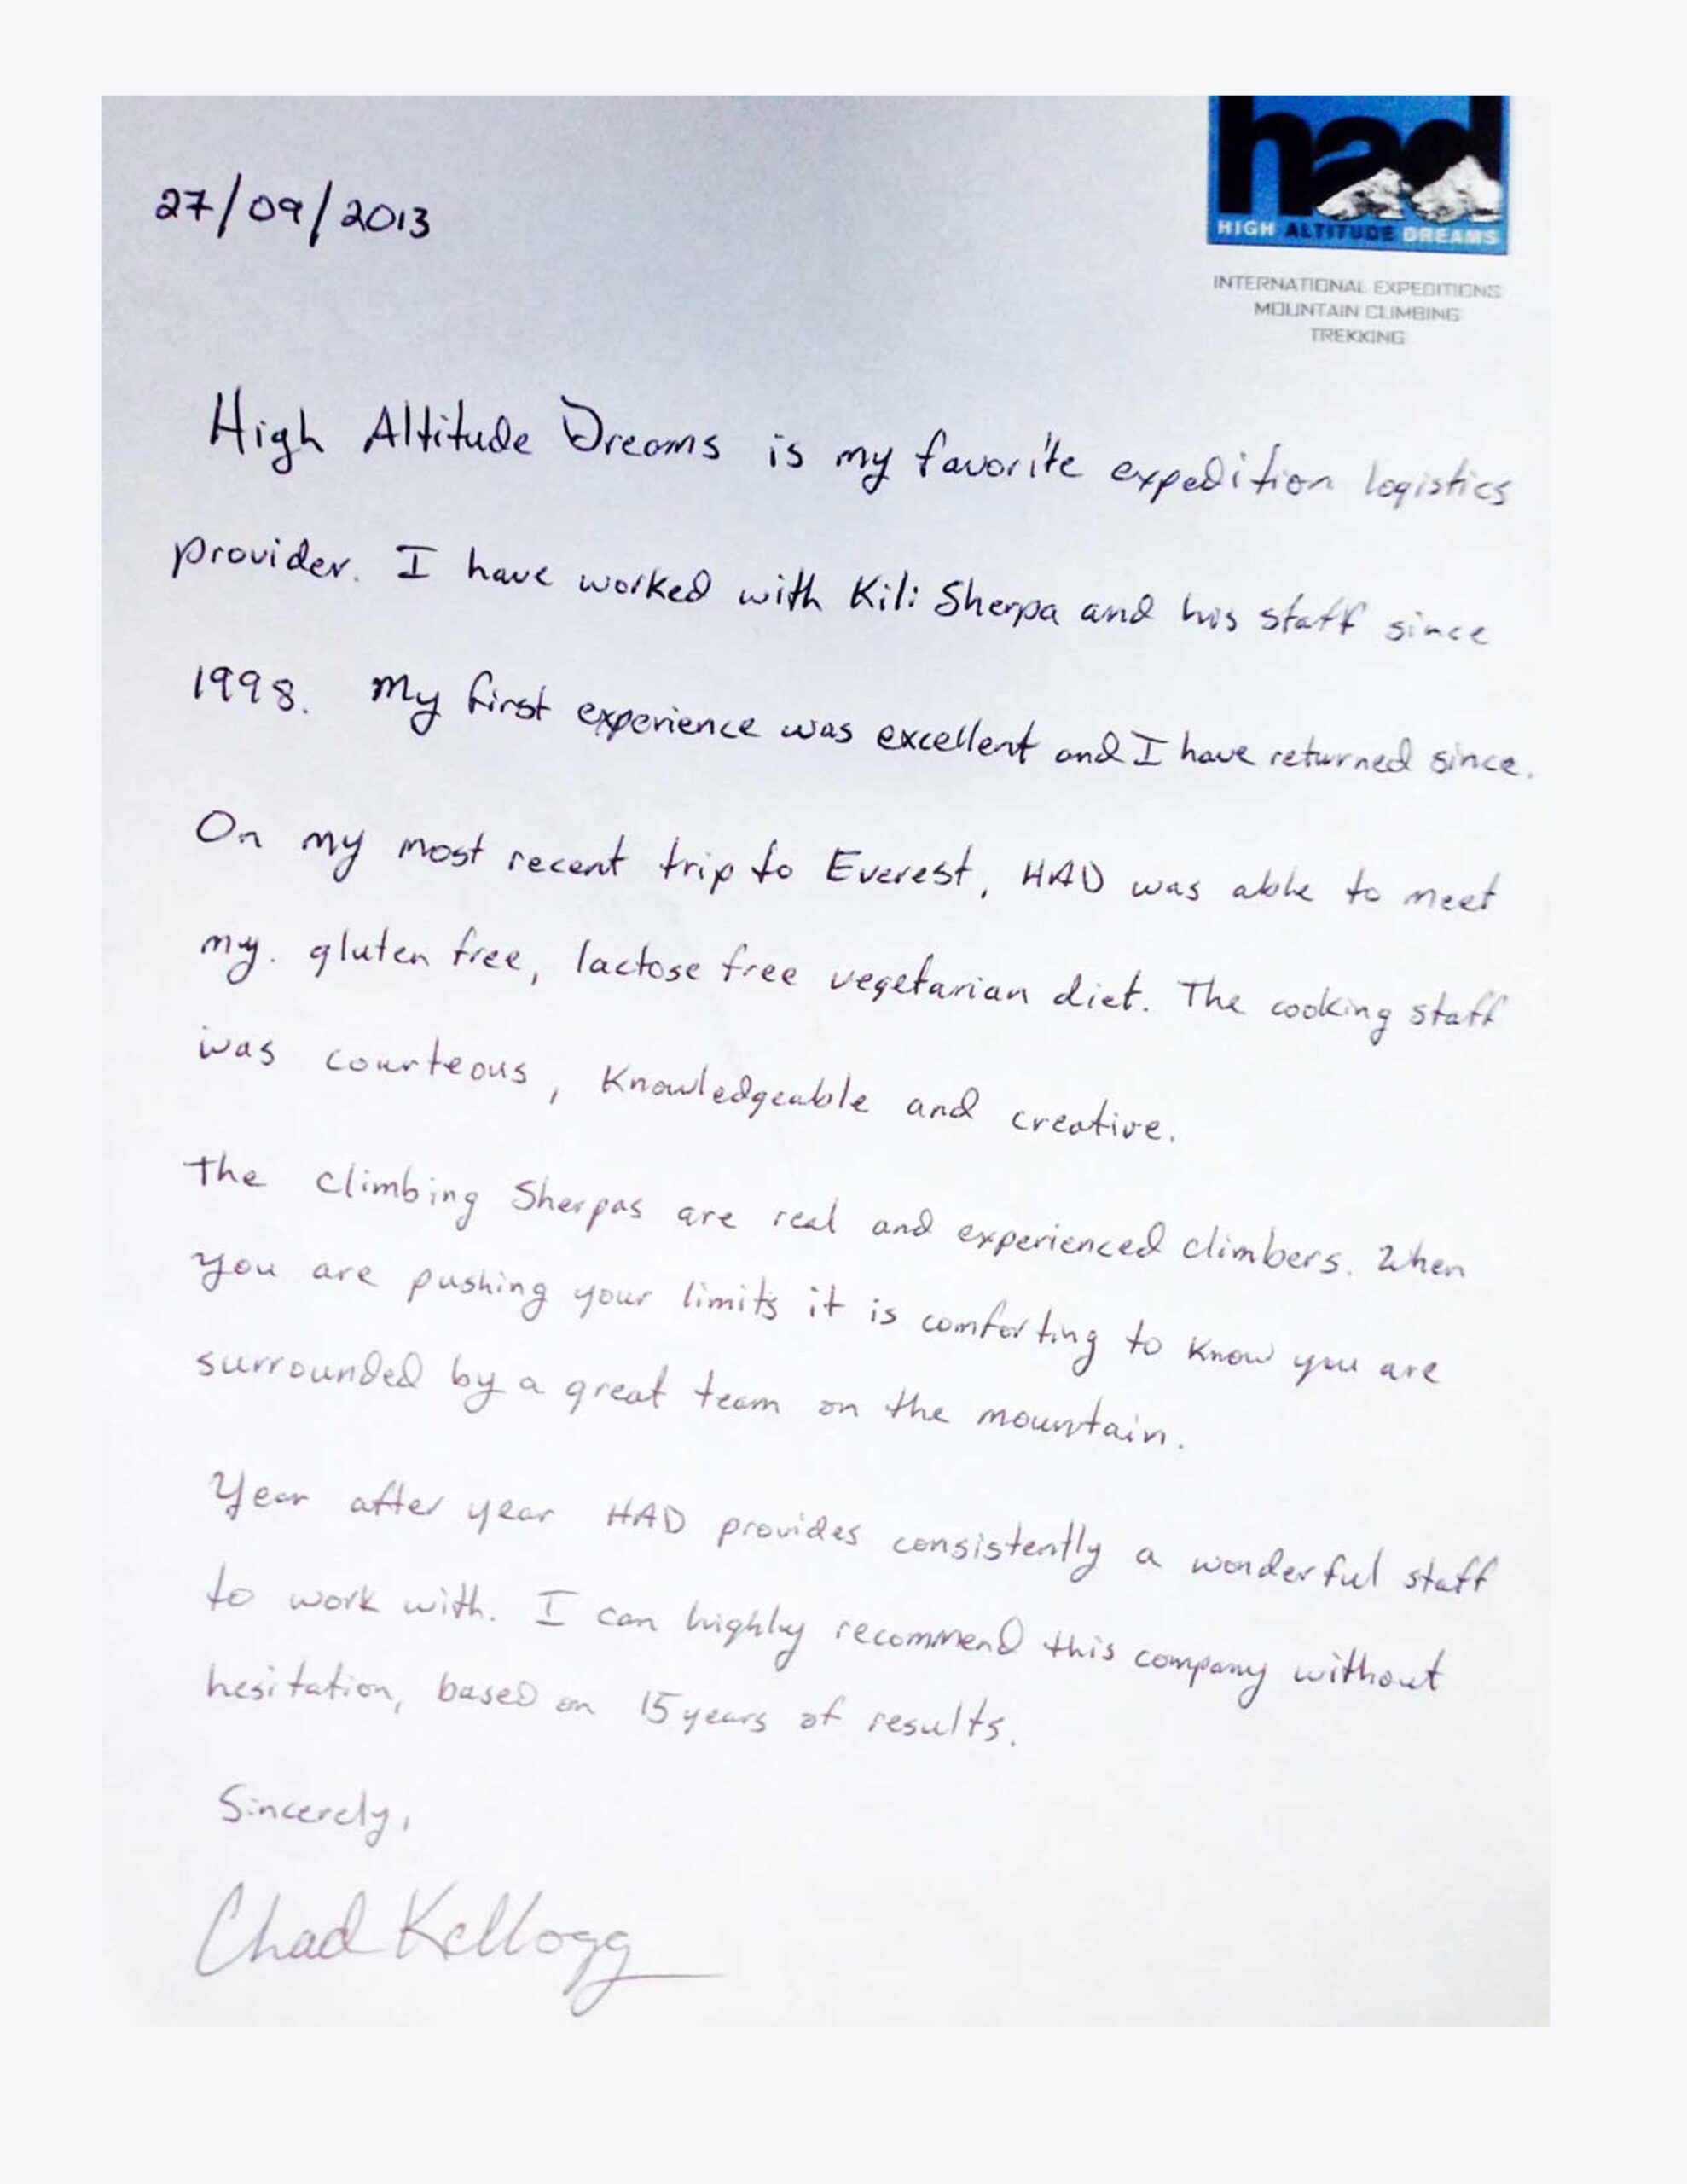 had
HIGH ALTITUDE DREAMS
INTERNATIONAL EXPEDITIONS
MOUNTAIN CLIMBING
TREKKING
27/09/2013
High Altitude Dreams is my favorite expedition logistics
provider. I have worked with Kili Sherpa and his staff since
1998. My first experience was excellent and I have returned since.
On my most recent trip to Everest, HAD was able to meet
my. gluten free, lactose free vegetarian diet. The cooking staff
was courteous, Knowledgeable and creative.
The climbing Sherpas are real and experienced climbers. When
you are pushing your limits it is comforting to know you are
surrounded by a great team on the mountain.
Year after year HAD provides consistently a wonderful staff
to work with. I can highly recommend this company without
hesitation, based on 15 years of results.
Sincerely,
Chad Kellogg